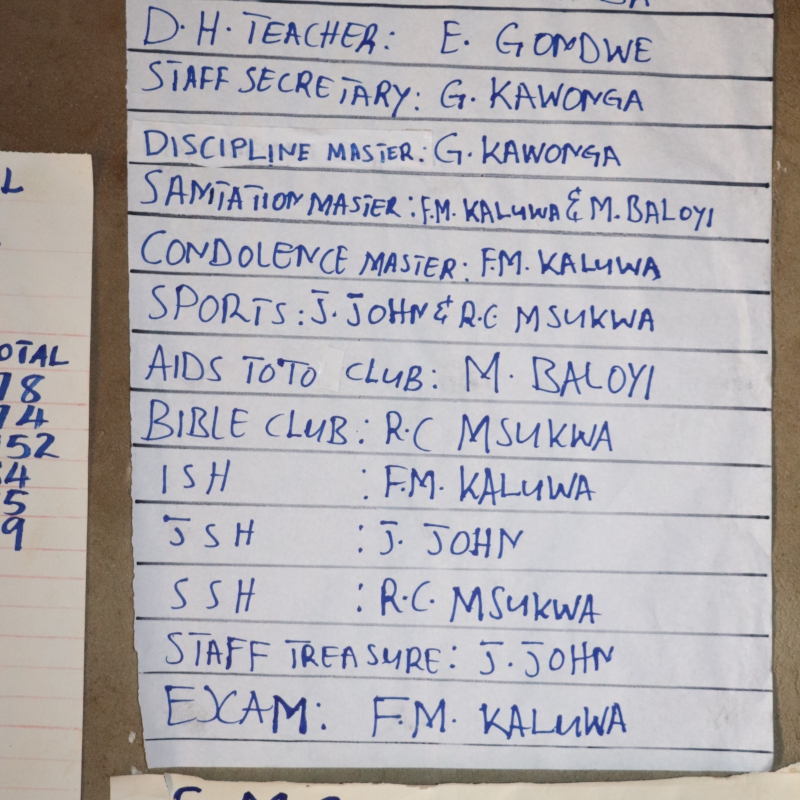 D.H. TEACHER: E. GONDWE
STAFF SECRETARY: G. KAWONGA
DISCIPLINE MASTER: G. KAWONGA
SANITATION MASTER: F.M. KALUWA & M. BALOYI
CONDOLENCE MASTER: F.M. KALUWA
SPORTS: J. JOHN & R.C MSUKWA
AIDS TOTO CLUB: M. BALOYI
BIBLE CLUB: R.C MSUKWA
ISH : F.M. KALUWA
JSH : J. JOHN
SSH : R.C. MSUKWA
STAFF TREASURE: J. JOHN
EXAM: F.M. KALUWA
L
OTAL
78
74
152
4
5
9